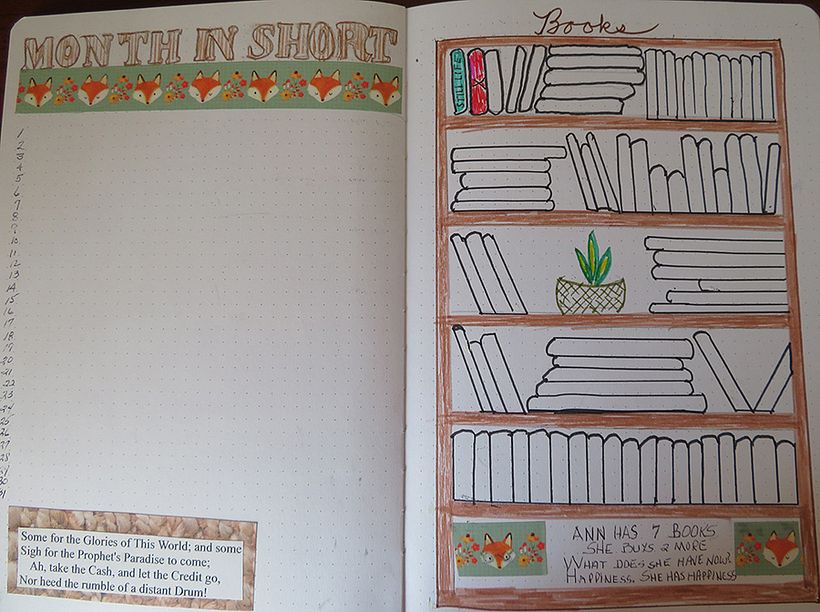 MONTH IN SHORT
1
2
3
4
5
6
7
8
9
10
11
12
13
14
15
16
17
18
19
20
21
22
23
24
25
26
27
28
29
30
31
Some for the Glories of This World; and some
Sigh for the Prophet's Paradise to come;
Ah, take the Cash, and let the Credit go,
Nor heed the rumble of a distant Drum!
Books
STILL LIFE
ANN HAS 7 BOOKS
SHE BUYS 2 MORE
WHAT DOES SHE HAVE NOW?
HAPPINESS. SHE HAS HAPPINESS